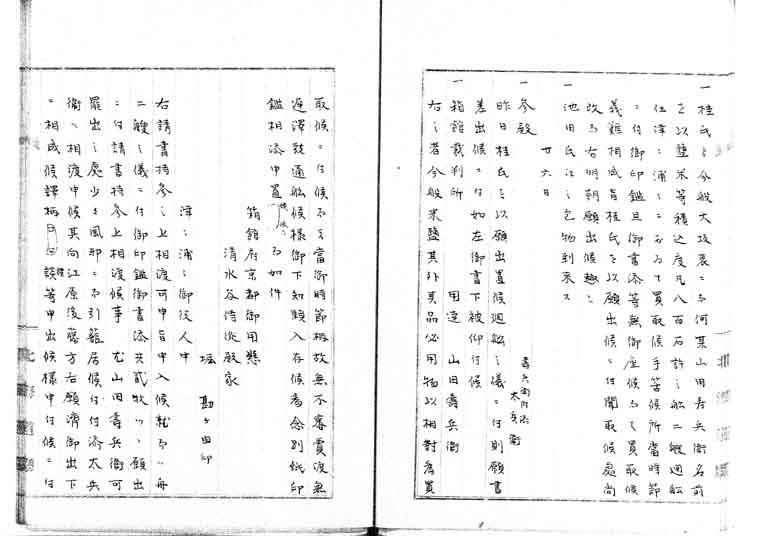 一 桂氏ゟ今般大坂表ニ而何某山田寿兵衛名前
を以塩米等積込度凡八百石許之船二艘廻船
仕津ニ浦ニニ而買取候手等候所當時節
ニ付御印鑑且御書添等無御座候而ハ買取候
義難相成旨桂氏ゟ以願出候ニ付聞取候處尚
改而右明朝願出候趣ニ
一 池田氏江之乞物到来ス
廿六日
一 参殿 壽兵衛内 太兵衛
昨日桂氏ゟ以願出置候廻船之儀ニ付則願書
差出候ニ付如左御書下被仰付候
箱館裁判所 用達 山田壽兵衛
一 右之者今般米鹽其外其品必用物以相對為買
取候ニ付候而ハ當御時節柄故無不審賣渡無
遅滞致通船候様御下知頼入存候為念別紙印
鑑相添申置 如件
箱館府京都御用懸
清水谷侍従殿家
堀 勘ヶ由印
津ニ浦ニ御役人中
右請書持参之上相渡可申旨申入候就而ハ舟
二艘之儀ニ付御印鑑御書添共貳枚ツヽ願出
ニ付請書持参上相渡候事 尤山田壽兵衛可
罷出之處少々風邪ニ而引籠居候付付添太兵
衛へ相渡申候其向江原後藤方右願濟御出下
ニ相成候譯柄 談等申出候様申付候ニ付